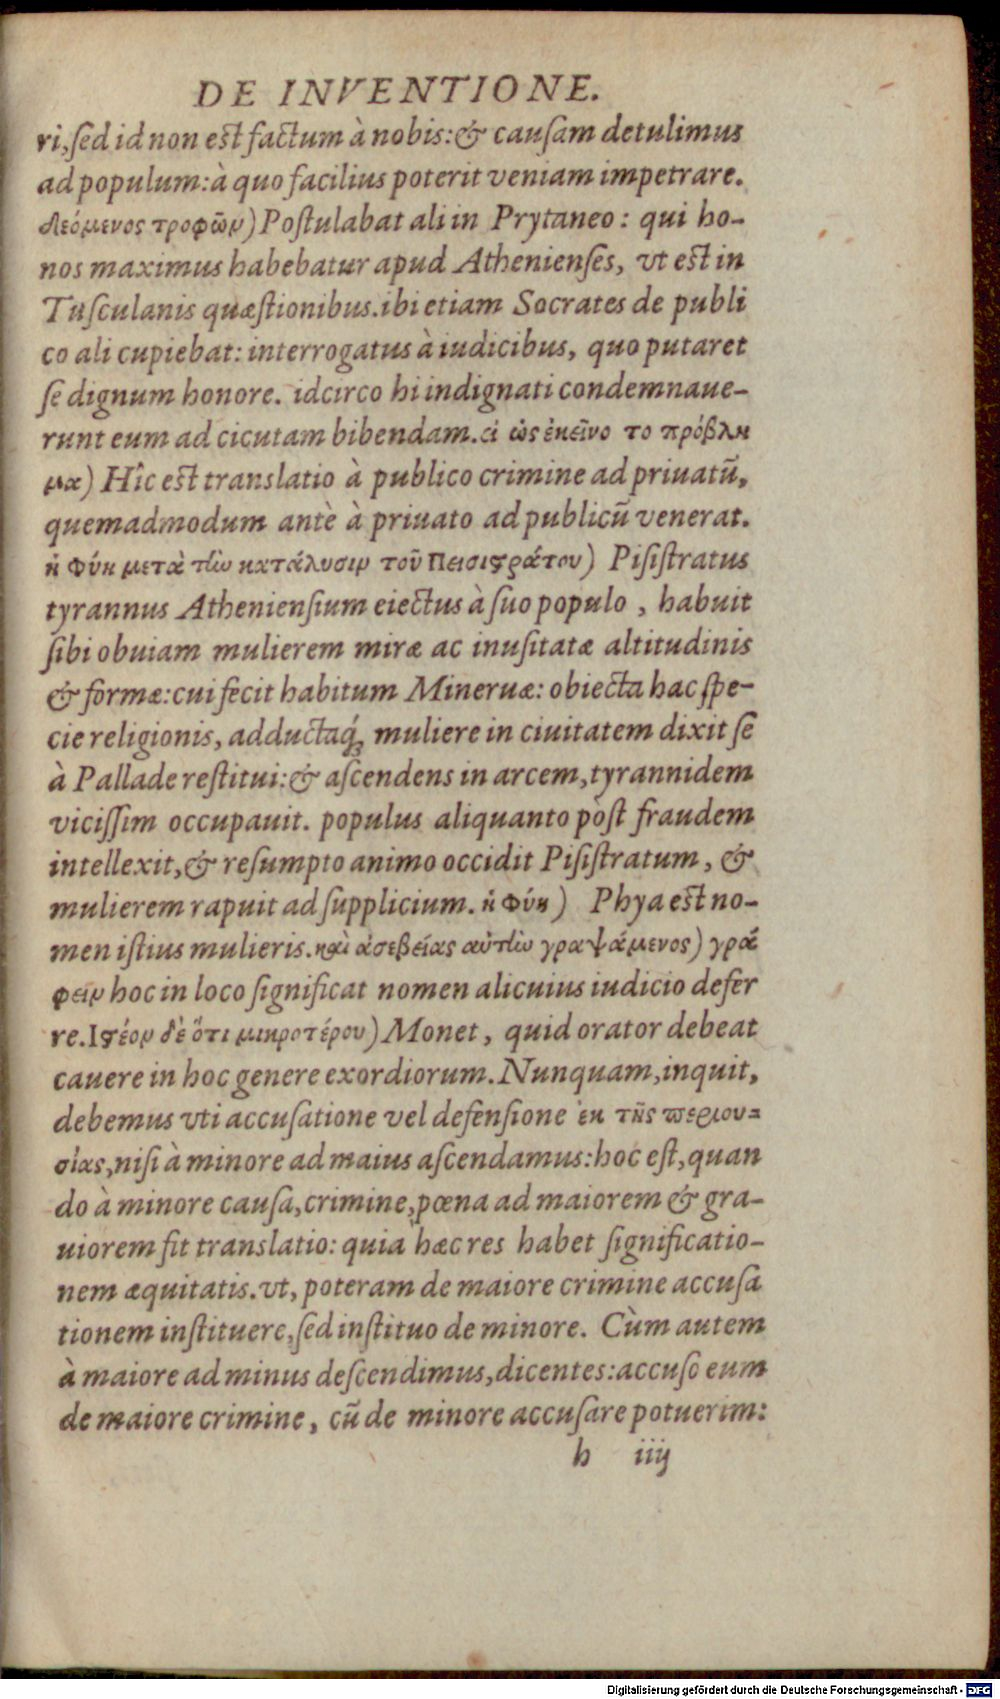 DE INVENTIONE.
ri, sed id non est factum à nobis: & causam detulimus
ad populum: à quo facilius poterit veniam impetrare.
δεόμενος τροφῶν) Postulabat ali in Prytaneo: qui ho-
nos maximus habebatur apud Athenienses, vt est in
Tusculanis quæstionibus. ibi etiam Socrates de publi
co ali cupiebat: interrogatus à iudicibus, quo putaret
se dignum honore. idcirco hi indignati condemnaue-
runt eum ad cicutam bibendam. εἰ ὡς ἐκεῖνο το πρόβλη
μα) Hîc est translatio à publico crimine ad priuatũ,
quemadmodum antè à priuato ad publicũ venerat.
ἡ Φύη μετὰ τὴν κατάλυσιν τοῦ Πεισιστράτου) Pisistratus
tyrannus Atheniensium eiectus à suo populo, habuit
sibi obuiam mulierem miræ ac inusitatæ altitudinis
& formæ: cui fecit habitum Mineruæ: obiecta hac spe-
cie religionis, adductaq́; muliere in ciuitatem dixit se
à Pallade restitui: & ascendens in arcem, tyrannidem
vicissim occupauit. populus aliquanto pòst fraudem
intellexit, & resumpto animo occidit Pisistratum, &
mulierem rapuit ad supplicium. ἡ Φύη) Phya est no-
men istius mulieris. καὶ ἀσεβείας αὐτὴν γραψάμενος) γρά
φειν hoc in loco significat nomen alicuius iudicio defer
re. Ιστέον δὲ ὅτι μικροτέρου) Monet, quid orator debeat
cauere in hoc genere exordiorum. Nunquam, inquit,
debemus vti accusatione vel defensione ἐκ τῆς περιου-
σίας, nisi à minore ad maius ascendamus: hoc est, quan
do à minore causa, crimine, pœna ad maiorem & gra-
uiorem fit translatio: quia hæc res habet significatio-
nem æquitatis. vt, poteram de maiore crimine accusa
tionem instituere, sed instituo de minore. Cùm autem
à maiore ad minus descendimus, dicentes: accuso eum
de maiore crimine, cũ de minore accusare potuerim:
h iiij
Digitalisierung gefördert durch die Deutsche Forschungsgemeinschaft - DFG